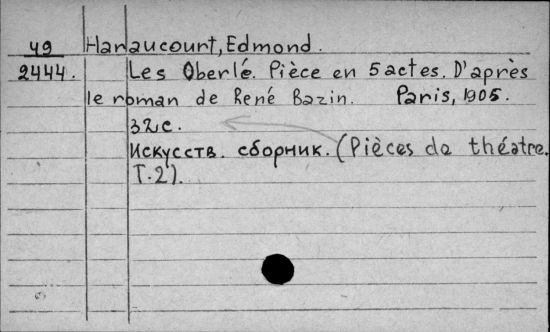 49 Haraucourt, Edmond.
2444. Les Oberlé. Pièce en 5 actes. D'après
le roman de René Bazin. Paris, 1905.
32 с.
Искусств. сборник. (Pièces de théatre.
T.2).